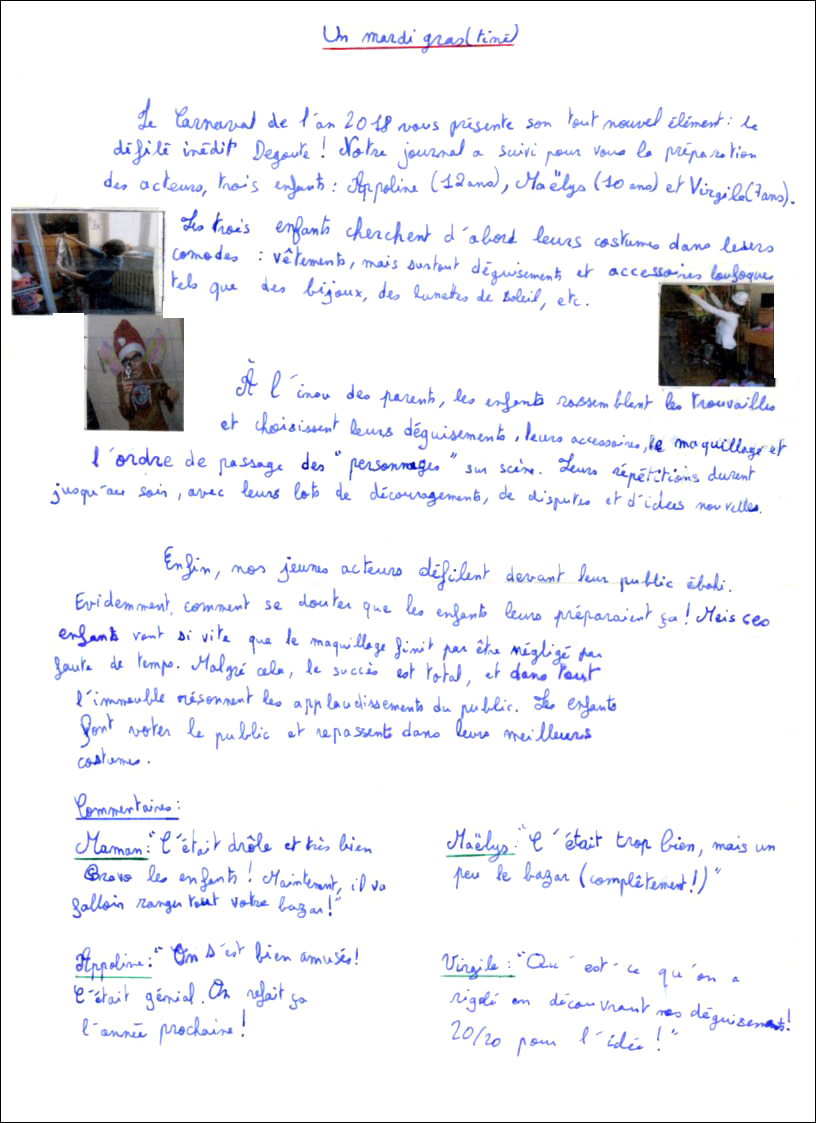 Un mardi gras(tiné)
Le Carnaval de l'an 2018 vous présente son tout nouvel élément : le
défilé inédit Degoute ! Notre journal a suivi pour vous la préparation
des acteurs, trois enfants : Appoline (12 ans), Maëlys (10 ans) et Virgile (7ans).
Les trois enfants cherchent d'abord leurs costumes dans leurs
comodes : vêtements, mais surtout déguisements et accessoires loufoques
tels que des bijoux, des lunettes de soleil, etc.
À l'insu des parents, les enfants rassemblent les trouvailles
et choisissent leurs déguisements, leurs accessoires, le maquillage et
l'ordre de passage des "personnages" sur scène. Leurs répétitions durent
jusqu'au soir, avec leurs lots de découragements, de disputes et d'idées nouvelles.
Enfin, nos jeunes acteurs défilent devant leur public ébahi.
Evidemment, comment se douter que les enfants leurs préparaient ça ! Mais ces
enfants vont si vite que le maquillage finit par être négligé par
faute de temps. Malgré cela, le succès est total, et dans tout
l'immeuble résonnent les applaudissements du public. Les enfants
font voter le public et repassent dans leurs meilleurs
costumes.
Commentaires :
Maman : "C'était drôle et très bien
Bravo les enfants ! Maintenant, il va
falloir ranger tout votre bazar !"
Maëlys : "C'était trop bien, mais un
peu le bazar (complètement !)"
Appoline : "On s'est bien amusés !
C'était génial. On refait ça
l'année prochaine !
Virgile : "Qu'est-ce qu'on a
rigolé en découvrant nos déguisements !
20/20 pour l'idée !"